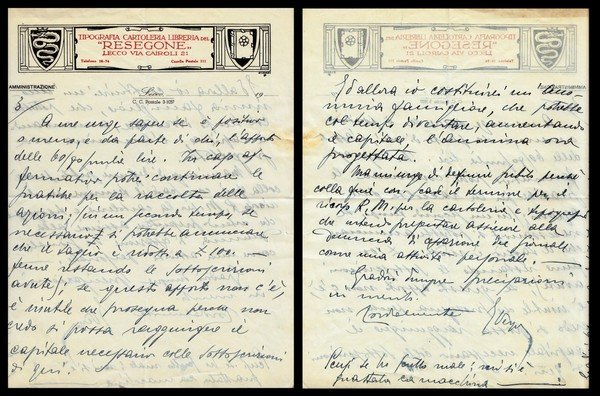 TIPOGRAFIA CARTOLERIA LIBRERIA DEL
"RESEGONE"
LECCO VIA CAIROLI 21
Telefono 26-74 Casella Postale 111
AMMINISTRAZIONE
19
C. C. Postale 3-1057
A me urge sapere se è positivo
o meno, e da parte di chi, l'apporto
delle mila lire. In caso af-
fermativo potrei continuare le
pratiche per la raccolta delle
azioni; in un secondo tempo, se
necessario si potrebbe annunciare
che il taglio è ridotto a £ 100.-
ferme restando le sottoscrizioni
avute; se questo apporto non c'è,
è inutile che prosegua perché non
credo si possa raggiungere il
capitale necessario colle sottoscrizioni
di qui.
Ed allora io costituirei un' ano-
nima famigliare, che potrebbe
col tempo diventare, aumentando
il capitale, l'anonima ora
progettata.
Ma mi urge di definire subito
colla qui con il termine per il
R. M. per la cartoleria e tipografia
da intendo assieme alla
denuncia dei giornali
come una attività personale.
Gradirò sempre precisazioni
in merito.
Cordialmente
Scusi se ho fatto male; non si è
trattato a macchina